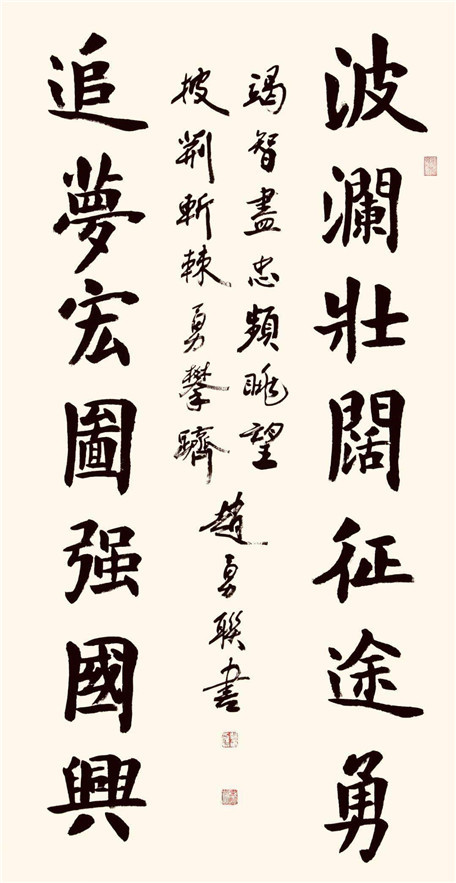 波瀾壯闊征途勇
竭智盡忠頻眺望
披荆斬棘勇攀躋
趙勇聯書
追夢宏圖强國興